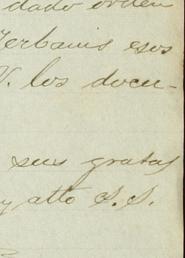 dado orden
Yerbanis esos
V. los docu-
sus gratas
y atto S. S.